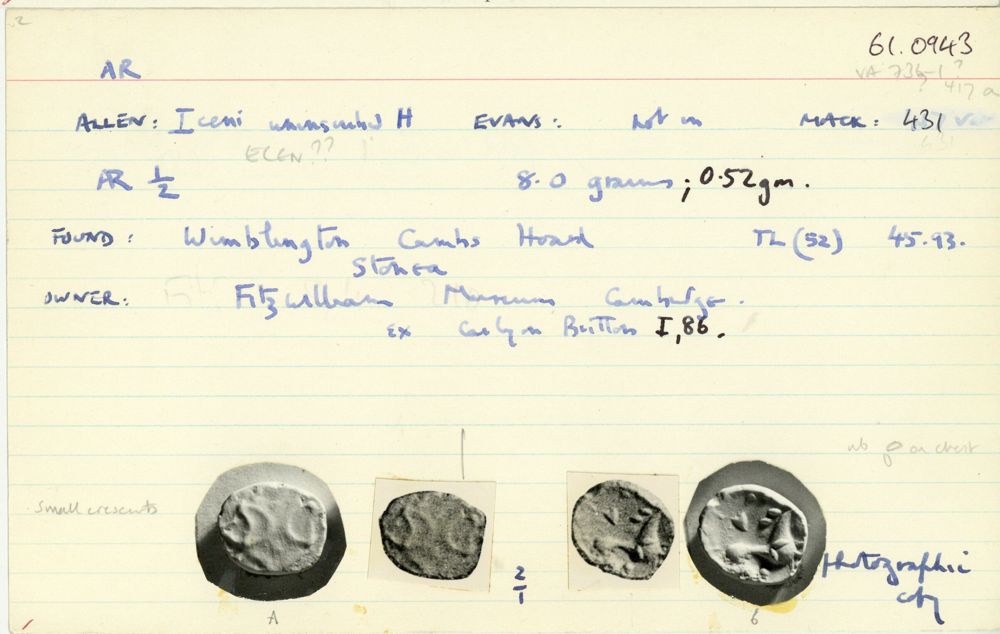 61.0943
AR
VA 736-1 ?
? 417 a
ALLEN: Iceni uninscribed H EVANS: Not in MACK: 431
ECEN??
AR 1/2 8.0 grains; 0.52gm.
FOUND: Wimblington Cambs Hoard TL (52) 45.93.
Stonea
OWNER: Fitzwilliam Museum Cambridge.
Ex Carlyon Britton I,86.
nb on chest
small crescents
2/1
Photographic
copy
A 6